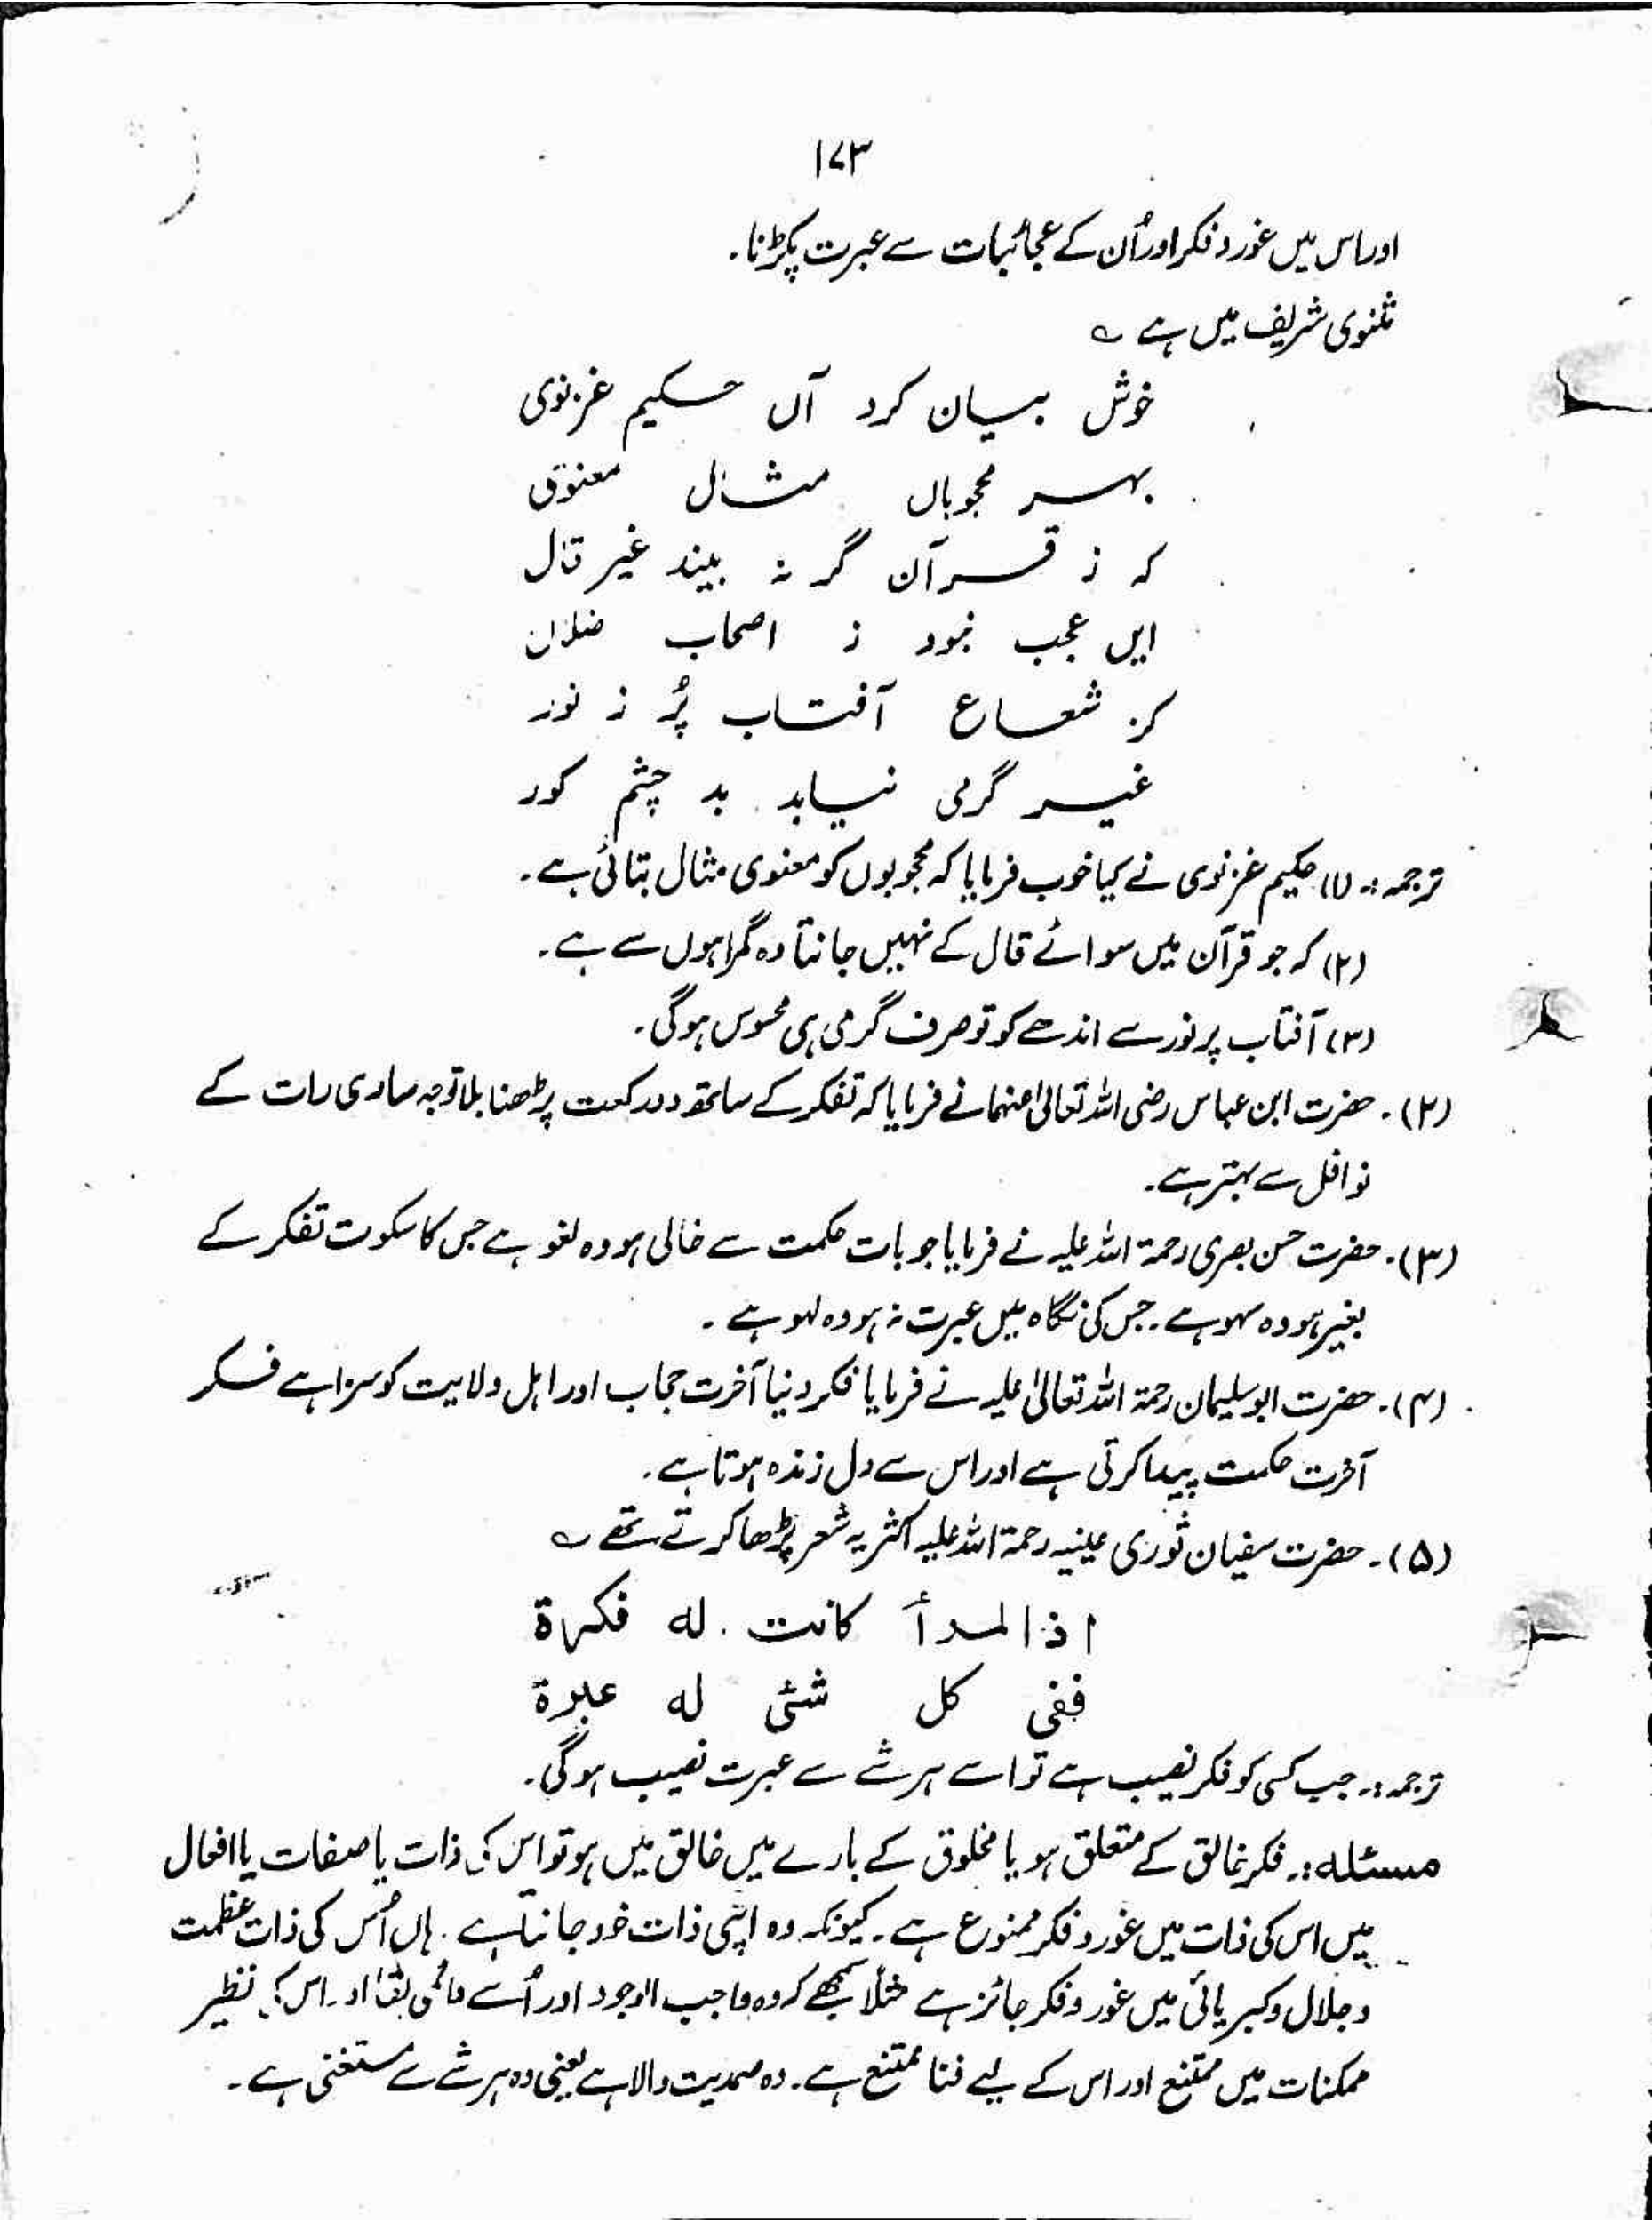 ۱۷۳
اور اس میں غور و فکر اور اُن کے عجائبات سے عبرت پکڑنا۔
مثنوی شریف میں ہے ؎
خوش بیان کرد آں حکیم غزنوی
بہر محجوباں مثال معنوی
کہ ز قرآن گر نہ بیند غیر قال
ایں عجب نبود ز اصحاب ضلال
کز شعاع آفتاب پُر ز نور
غیر گرمی نیابد بد چشم کور
ترجمہ:۔ (۱) حکیم غزنوی نے کیا خوب فرمایا کہ محجوبوں کو معنوی مثال بتائی ہے۔
(۲) کہ جو قرآن میں سوائے قال کے نہیں جانتا وہ گمراہوں سے ہے۔
(۳) آفتاب پر نور سے اندھے کو تو صرف گرمی ہی محسوس ہوگی۔
(۲)۔ حضرت ابن عباس رضی اللہ تعالیٰ عنہما نے فرمایا کہ تفکر کے ساتھ دو رکعت پڑھنا بلا توجہ ساری رات کے
نوافل سے بہتر ہے۔
(۳)۔ حضرت حسن بصری رحمۃ اللہ علیہ نے فرمایا جو بات حکمت سے خالی ہو وہ لغو ہے جس کا سکوت تفکر کے
بغیر ہو وہ سہو ہے۔ جس کی نگاہ میں عبرت نہ ہو وہ لہو ہے۔
(۴)۔ حضرت ابو سلیمان رحمۃ اللہ تعالیٰ علیہ نے فرمایا فکر دنیا آخرت حجاب اور اہل ولایت کو سزا ہے فکر
آخرت حکمت پیدا کرتی ہے اور اس سے دل زندہ ہوتا ہے۔
(۵)۔ حضرت سفیان ثوری عینیہ رحمۃ اللہ علیہ اکثر یہ شعر پڑھا کرتے تھے ؎
اذا المرأ کانت له فکرة
ففی کل شئی له عبرة
ترجمہ:۔ جب کسی کو فکر نصیب ہے تو اسے ہر شے سے عبرت نصیب ہوگی۔
مسئلہ:۔ فکر خالق کے متعلق ہو یا مخلوق کے بارے میں خالق میں ہو تو اس کی ذات یا صفات یا افعال
میں اس کی ذات میں غور و فکر ممنوع ہے۔ کیونکہ وہ اپنی ذات خود جانتا ہے۔ ہاں اُس کی ذات عظمت
و جلال و کبریائی میں غور و فکر جائز ہے مثلاً سمجھے کہ وہ واجب الوجود اور اُسے دائمی بقا اور اس کی نظیر
ممکنات میں ممتنع اور اس کے لیے فنا ممتنع ہے۔ وہ صمدیت والا ہے یعنی وہ ہر شے سے مستغنی ہے۔